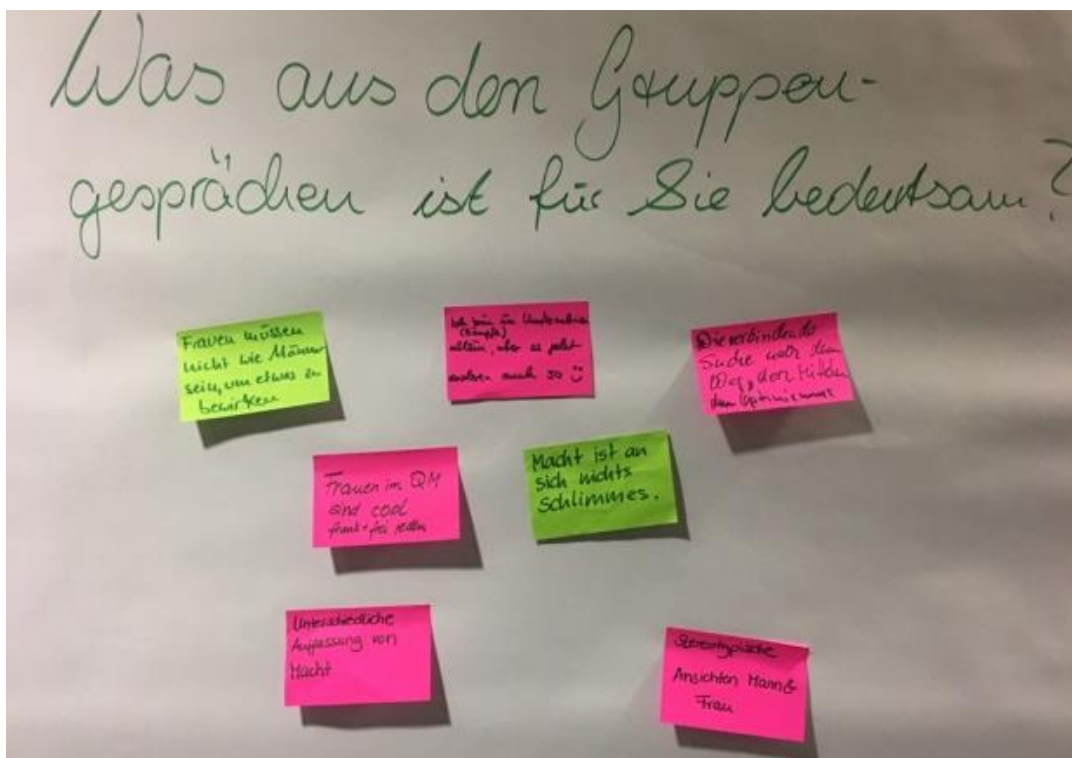 Was aus den Gruppen-
gesprächen ist für Sie bedeutsam?
Frauen müssen
nicht wie Männer
sein, um etwas zu
bewirken
Ich bin im Unternehmen
allein, aber es geht
anderen auch so ☺
Die verbindende
Suche nach dem
Weg, den Mitteln
dem Optimismus
Frauen im QM
sind cool
frank + frei reden
Macht ist an
sich nichts
schlimmes.
Unterschiedliche
Auffassung von
Macht
Stereotypische
Ansichten Mann &
Frau